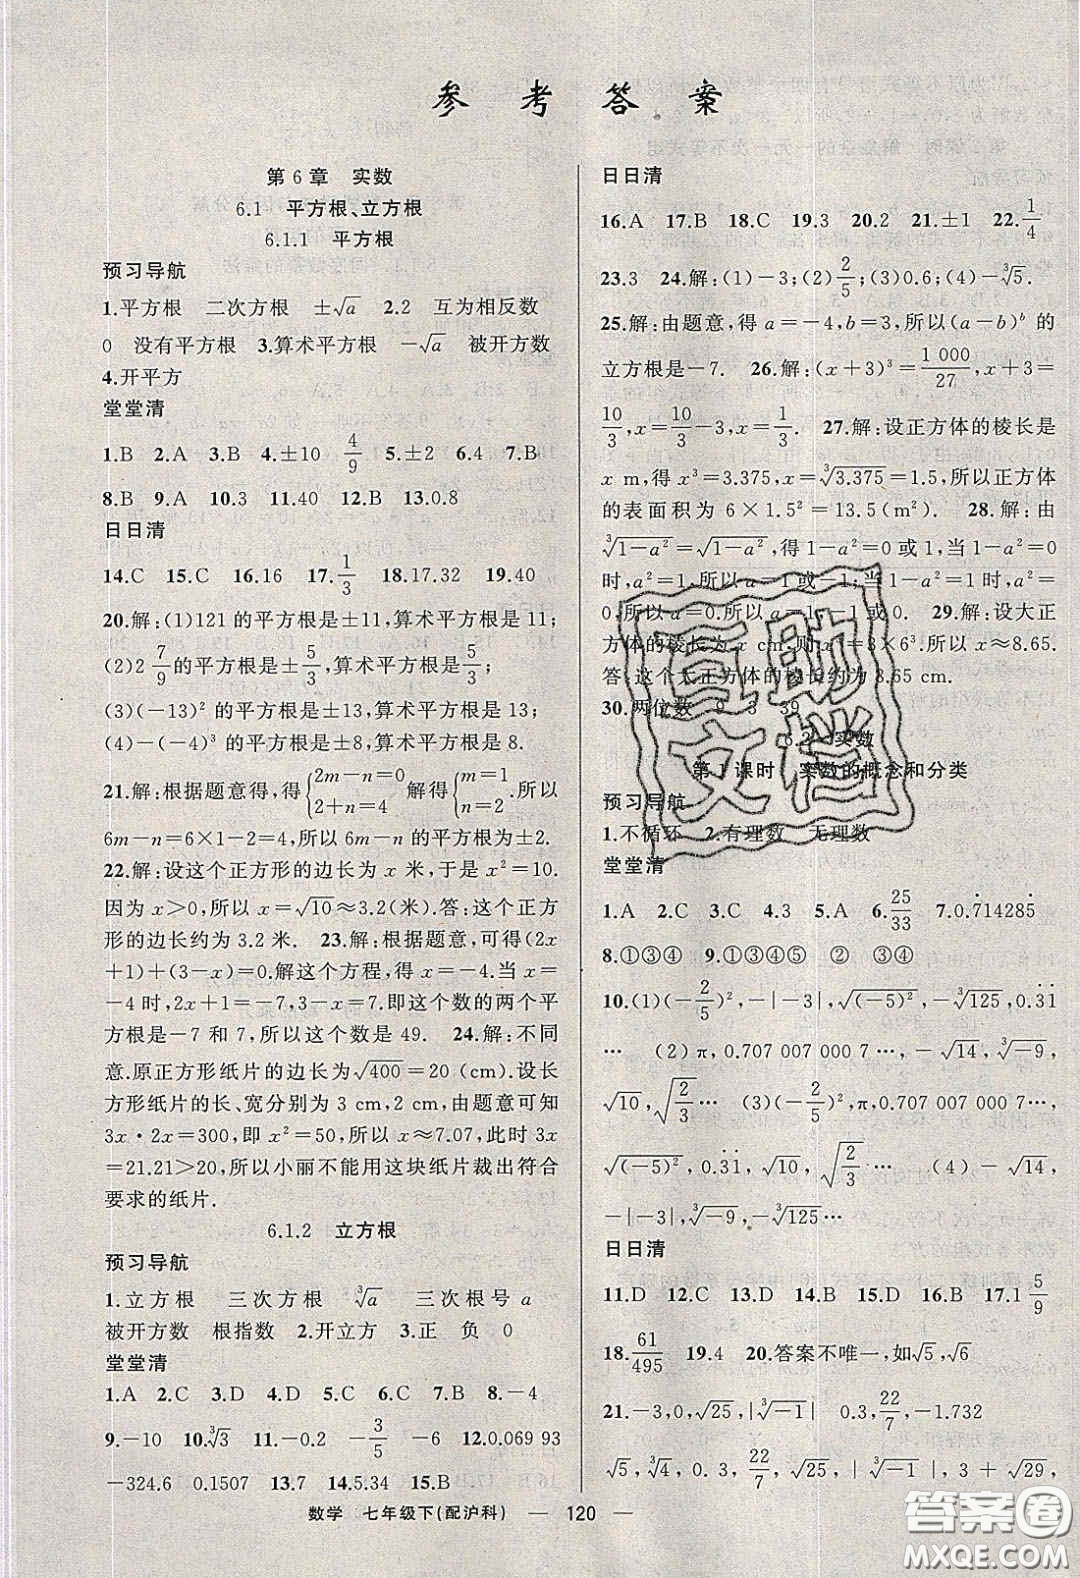 参考答案
第6章 实数
6.1 平方根、立方根
6.1.1 平方根
预习导航
1.平方根 二次方根 ±√a 2.2 互为相反数
0 没有平方根 3.算术平方根 -√a 被开方数
4.开平方
堂堂清
1.B 2.A 3.B 4.±10 4/9 5.±2 6.4 7.B
8.B 9.A 10.3 11.40 12.B 13.0.8
日日清
14.C 15.C 16.16 17.1/3 18.17.32 19.40
20.解:(1)121的平方根是±11,算术平方根是11;
(2)2 7/9的平方根是±5/3,算术平方根是5/3;
(3)(-13)²的平方根是±13,算术平方根是13;
(4)-(-4)³的平方根是±8,算术平方根是8.
21.解:根据题意得,得{2m-n=0 2+n=4 解得{m=1 n=2 所以
6m-n=6×1-2=4,所以6m-n的平方根是±2.
22.解:设这个正方形的边长为x米,于是x²=10.
因为x>0,所以x=√10≈3.2(米).答:这个正方
形的边长约为3.2米. 23.解:根据题意,可得(2x
+1)+(3+x)=0.解这个方程,得x=-4.当x=
-4时,2x+1=-7,3-x=7.即这个数的两个平
方根是-7和7,所以这个数是49. 24.解:不同
意.原正方形纸片的边长为√400=20(cm).设长
方形纸片的长、宽分别为3 cm,2 cm,由题意可知
3x·2x=300,即x²=50,所以x≈7.07,此时3x
=21.21>20,所以小丽不能用这块纸片裁出符合
要求的纸片.
6.1.2 立方根
预习导航
1.立方根 三次方根 ³√a 三次根号a
被开方数 根指数 2.开立方 3.正 负 0
堂堂清
1.A 2.C 3.D 4.D 5.C 6.C 7.B 8.-4
9.-10 10.³√3 11.-0.2 -3/5 -6 12.0.069 93
-324.6 0.1507 13.7 14.5.34 15.B
日日清
16.A 17.B 18.C 19.3 20.2 21.±1 22.1/4
23.3 24.解:(1)-3;(2)2/5;(3)0.6;(4)-³√5.
25.解:由题意,得a=-4,b=3,所以(a-b)ᵇ的
立方根是-7. 26.解:(x+3)³=1 000/27,x+3=
10/3,x=10/3-3,x=1/3. 27.解:设正方体的棱长是
x m,得x³=3.375,x=³√3.375=1.5,所以正方体
的表面积为6×1.5²=13.5(m²). 28.解:由
³√1-a²=√1-a²,得1-a²=0或1,当1-a²=0
时,a²=1,所以a=1或-1;当1-a²=1时,a²=
0,所以a=0.所以a=1,-1或0. 29.解:设大正
方体的棱长为x cm,则x³=3×6³.所以x≈8.65.
答:这个大正方体的棱长约为8.65 cm.
30.两位数 9 3 39
6.2 实数
第1课时 实数的概念和分类
预习导航
1.不循环 2.有理数 无理数
堂堂清
1.A 2.C 3.C 4.3 5.A 6.25/33 7.0.7̇14285̇
8.①③④ 9.①③④⑤ ② ③④
10.(1)(-2/5)²,-|-3|,√(-5)²,-³√125,0.3̇1̇
… (2)π,0.707 007 000 7…,-√14,³√-9,
√10,√2/3… (3)(-2/5)²,π,0.707 007 000 7…,
√(-5)²,0.3̇1̇,√10,√2/3… (4)-√14,
-|-3|,³√-9,-³√125…
日日清
11.D 12.C 13.D 14.B 15.C 16.B 17.1 5/9
18.61/495 19.4 20.答案不唯一,如√5,√6
21.-3,0,√25,|³√-1| 0.3,22/7,-1.732
√5,³√4,0,0.3,22/7,√25,|³√-1|,3+√29,
数学 七年级下(配沪科) — 120 —
互助文档
答案圈
MXQE.COM